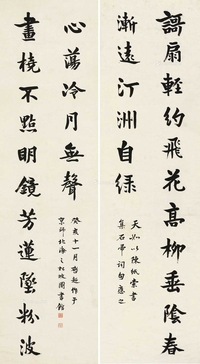 謌扇輕約飛花高柳垂陰春
漸遠汀洲自綠
天如以陳紙索書
集石帚詞句應之
畫橈不點明鏡芳蓮墜粉波
心蕩冷月無聲
癸亥十一月啟超作于
京師北海之松坡圖書館